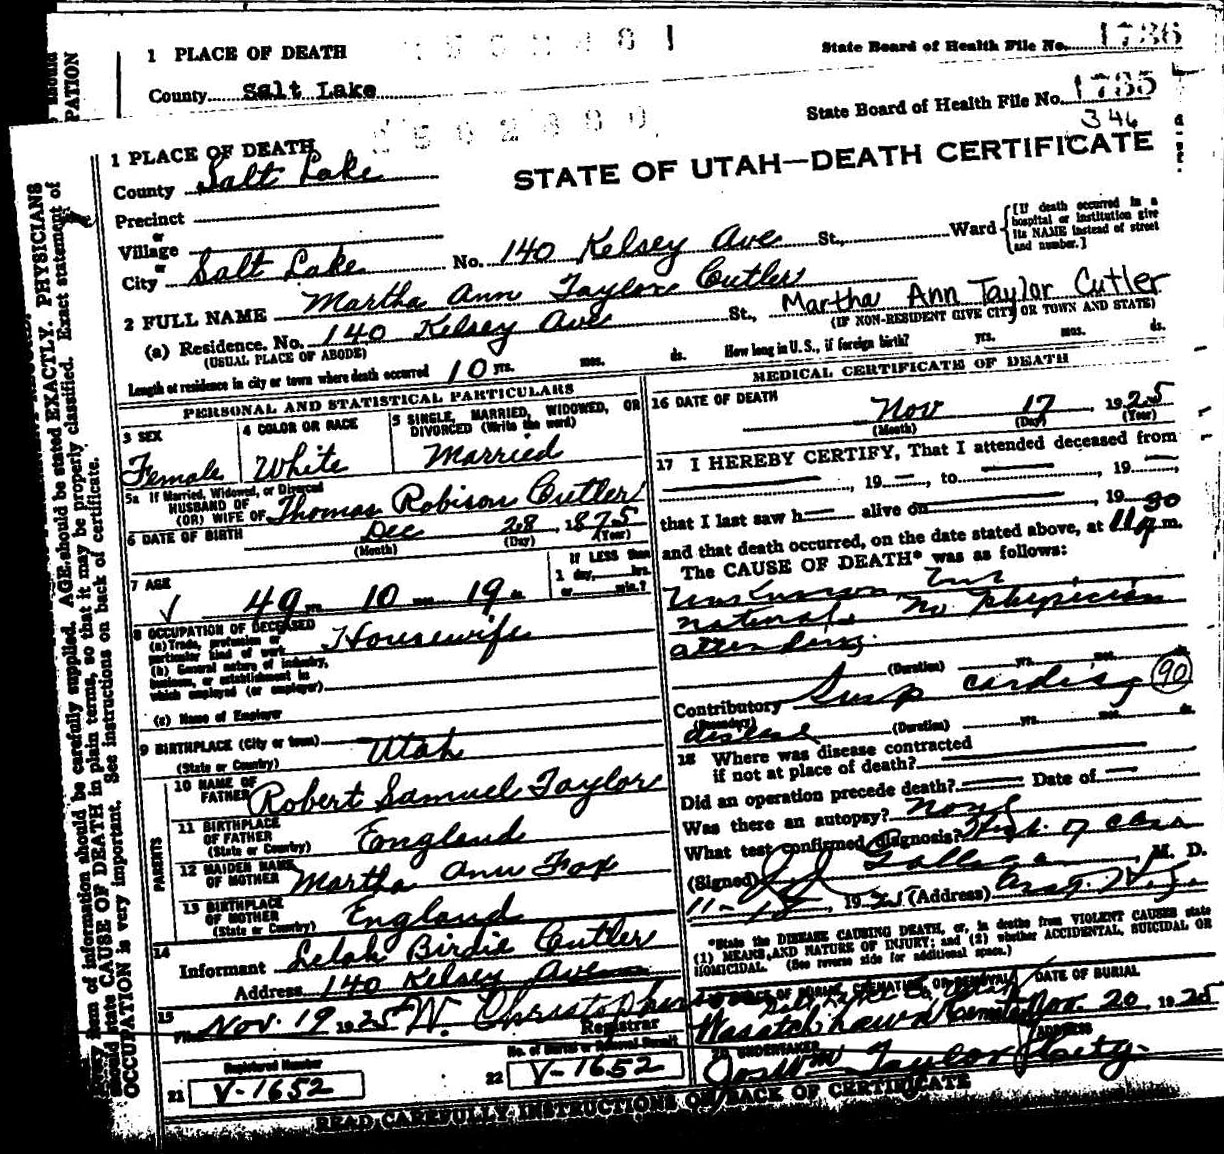 1 PLACE OF DEATH
State Board of Health File No. 1736
County Salt Lake
State Board of Health File No. 1735
346
1 PLACE OF DEATH
STATE OF UTAH—DEATH CERTIFICATE
County Salt Lake
Precinct
or
Village
or
City Salt Lake No. 140 Kelsey Ave St., Ward
[If death occurred in a hospital or institution give its NAME instead of street and number.]
2 FULL NAME Martha Ann Taylor Cutler
Martha Ann Taylor Cutler
(a) Residence. No. 140 Kelsey Ave St.,
(USUAL PLACE OF ABODE)
(IF NON-RESIDENT GIVE CITY OR TOWN AND STATE)
Length of residence in city or town where death occurred 10 yrs. mos. ds. How long in U.S., if foreign birth? yrs. mos. ds.
PERSONAL AND STATISTICAL PARTICULARS
3 SEX
Female
4 COLOR OR RACE
White
5 SINGLE, MARRIED, WIDOWED, OR DIVORCED (Write the word)
Married
5a If Married, Widowed, or Divorced
HUSBAND OF
(OR) WIFE OF Thomas Robison Cutler
6 DATE OF BIRTH Dec 28, 1875
(Month) (Day) (Year)
7 AGE
49 yrs. 10 mos. 19 ds.
If LESS than
1 day, hrs.
or min.?
8 OCCUPATION OF DECEASED
(a) Trade, profession or
particular kind of work Housewife
(b) General nature of industry,
business, or establishment in
which employed (or employer)
(c) Name of Employer
9 BIRTHPLACE (City or town)
(State or Country) Utah
PARENTS
10 NAME OF
FATHER Robert Samuel Taylor
11 BIRTHPLACE
OF FATHER England
(State or Country)
12 MAIDEN NAME
OF MOTHER Martha Ann Fox
13 BIRTHPLACE
OF MOTHER England
(State or Country)
14
Informant Lelah Birdie Cutler
Address 140 Kelsey Ave
15
Filed Nov. 19 1925 W. Christopherson
Registrar
Registered Number
21 V-1652
No. of Burial or Removal Permit
22 V-1652
MEDICAL CERTIFICATE OF DEATH
16 DATE OF DEATH
Nov 17, 1925
(Month) (Day) (Year)
17 I HEREBY CERTIFY, That I attended deceased from
, 19 , to , 19 ,
that I last saw h alive on , 19
and that death occurred, on the date stated above, at 11 30 m.
The CAUSE OF DEATH* was as follows:
Unknown but
natural. No Physician
attending.
(Duration) yrs. mos. ds.
Contributory Susp cardiac 90
(Secondary)
disease (Duration) yrs. mos. ds.
18 Where was disease contracted
if not at place of death?
Did an operation precede death? Date of
Was there an autopsy? None
What test confirmed diagnosis? Hist. of case
(Signed) M. D.
11-18, 1925 (Address)
*State the DISEASE CAUSING DEATH, or, in deaths from VIOLENT CAUSES state
(1) MEANS AND NATURE OF INJURY; and (2) whether ACCIDENTAL, SUICIDAL OR
HOMICIDAL. (See reverse side for additional space.)
PLACE OF BURIAL, CREMATION, OR REMOVAL
DATE OF BURIAL
Wasatch Lawn Cemetery Nov. 20, 1925
20 UNDERTAKER
ADDRESS
Jos Wm Taylor City.
READ CAREFULLY INSTRUCTIONS ON BACK OF CERTIFICATE
item of information should be carefully supplied. AGE should be stated EXACTLY. PHYSICIANS
should state CAUSE OF DEATH in plain terms, so that it may be properly classified. Exact statement of
OCCUPATION is very important. See instructions on back of certificate.